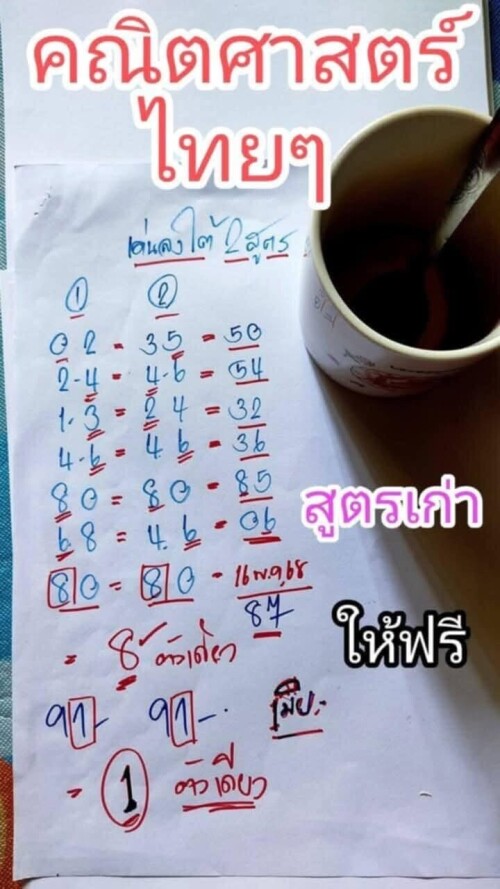 คณิตศาสตร์
ไทยๆ
เด่นลงใต้ 2 สูตร
1 2
02 = 35 = 50
2-4 = 4-6 = 54
1-3 = 24 = 32
4-6 = 46 = 36
80 = 80 - 85
68 = 4.6 - 06
80 = 80 - 16 พ.ย, 68
87
= 8 ตัวเดียว
91- 91-
= 1 ตัวเดียว
สูตรเก่า
ให้ฟรี